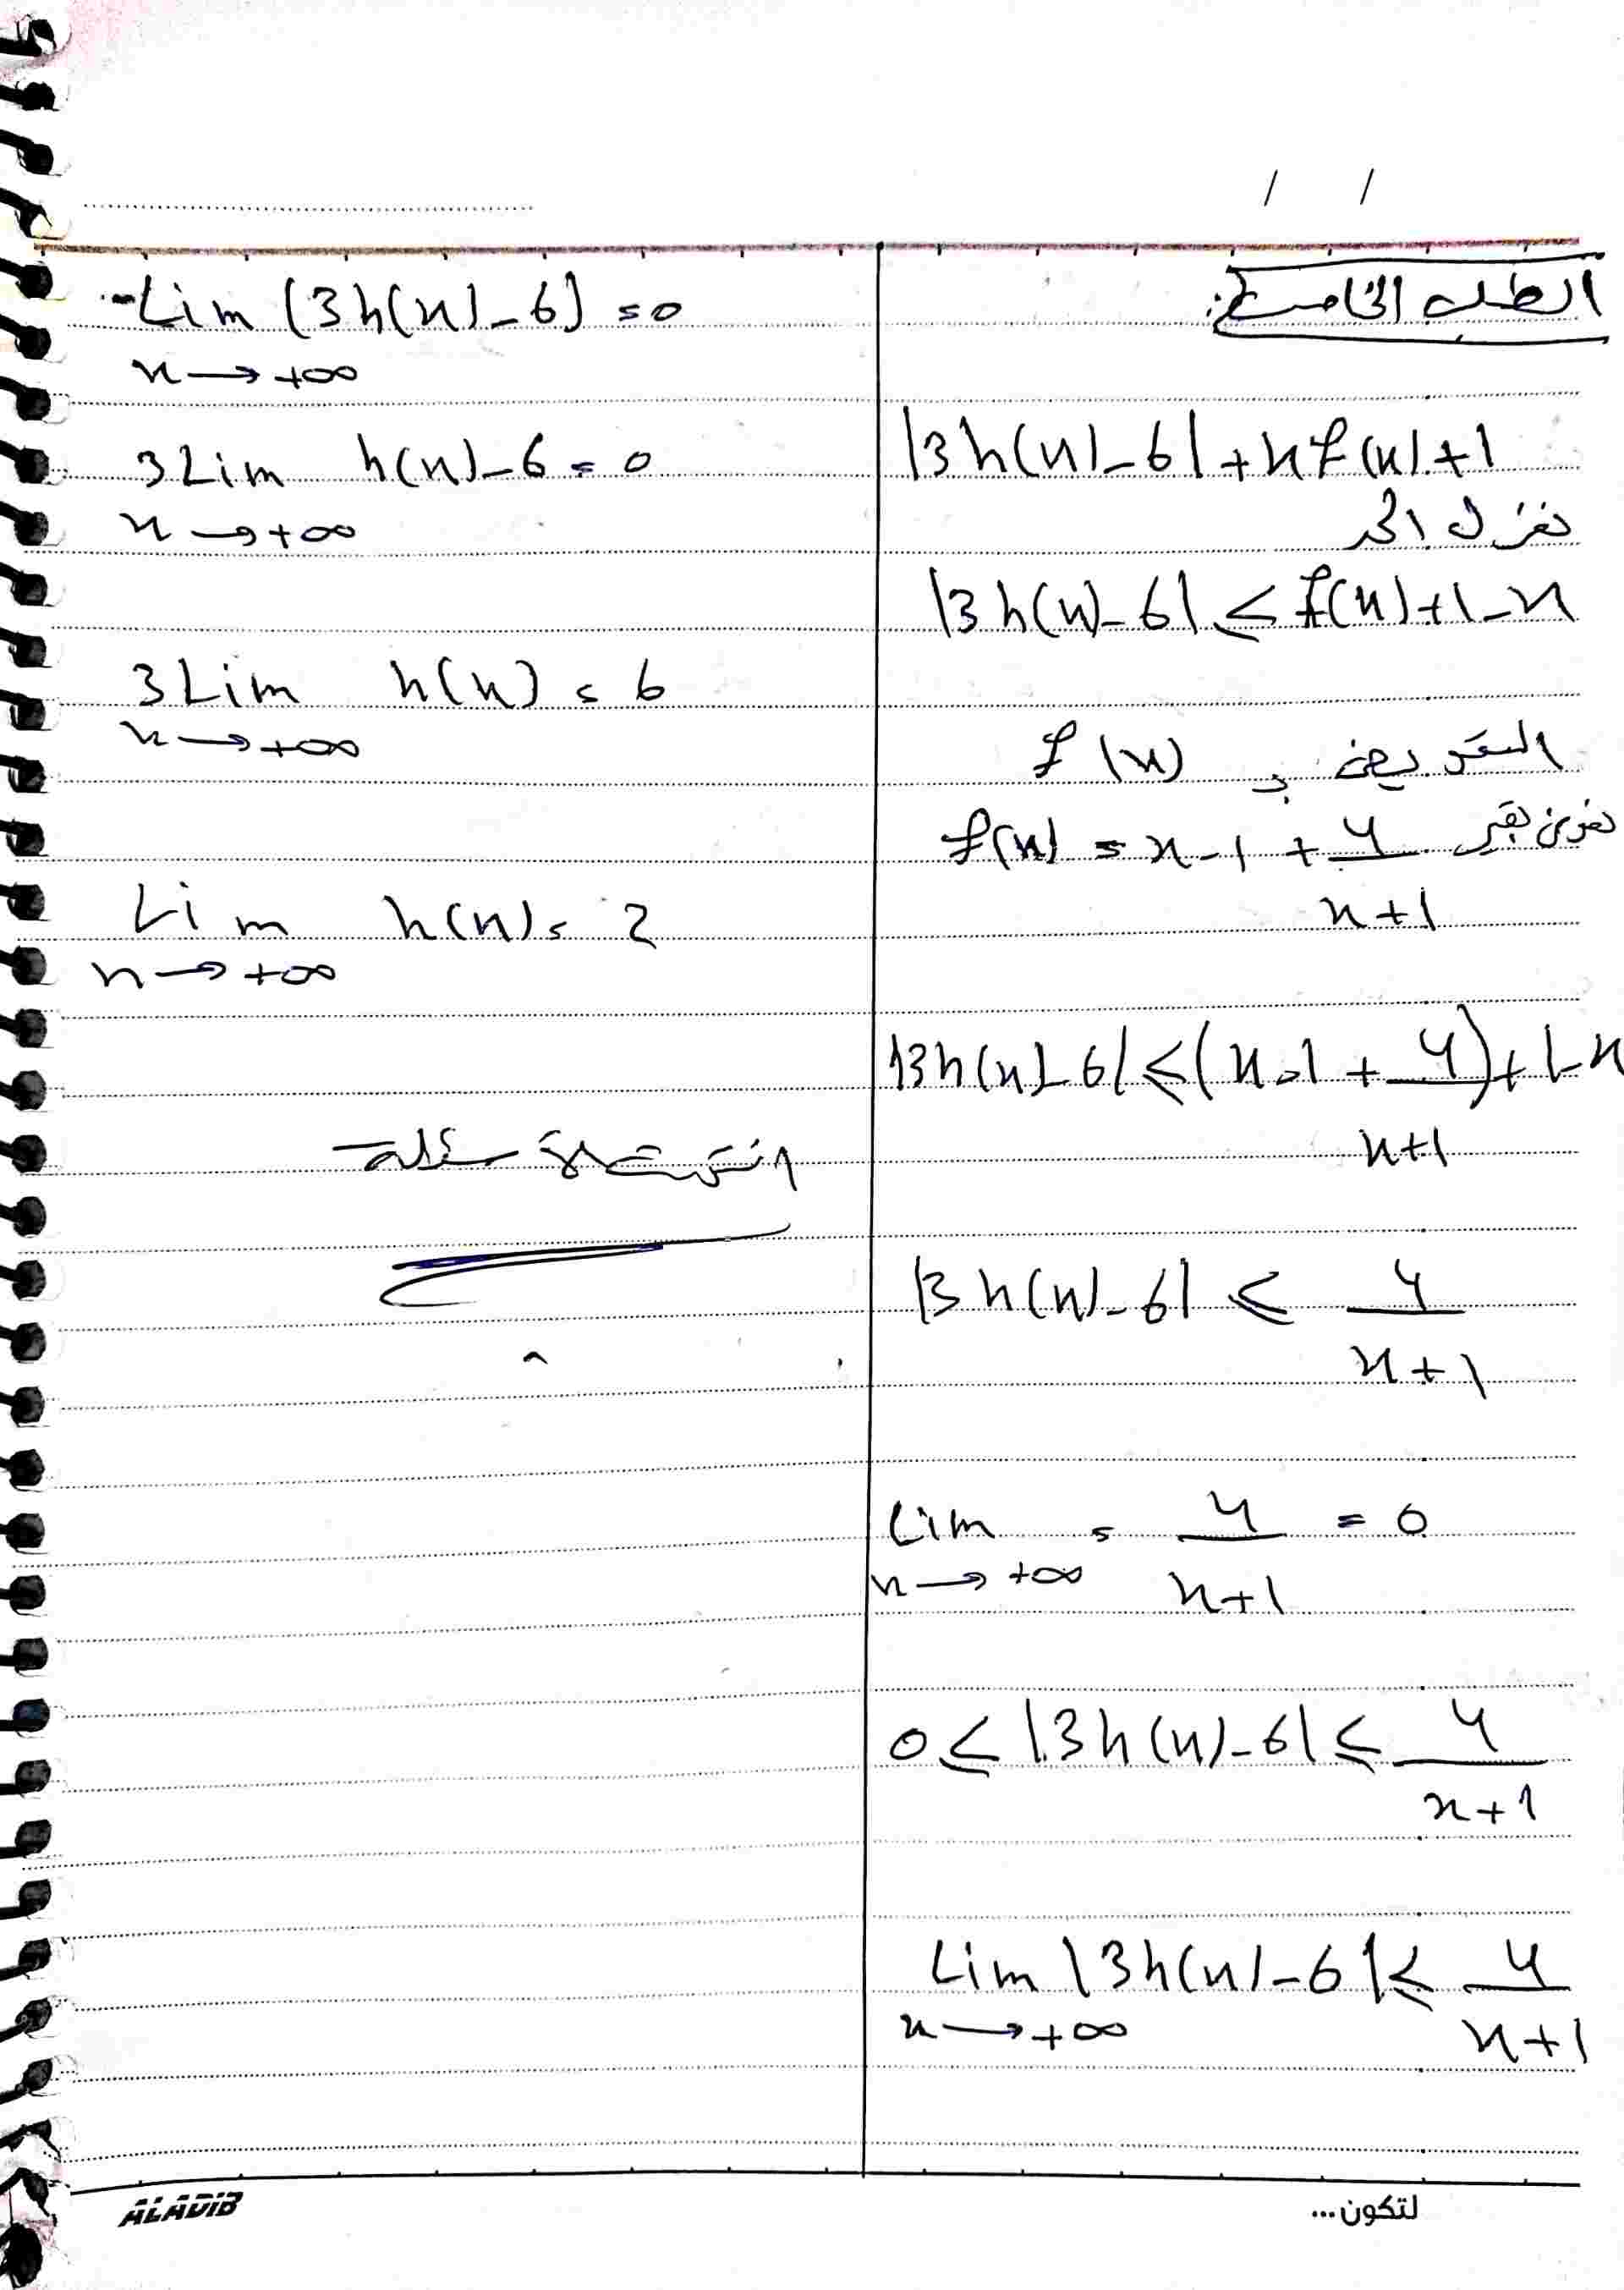 / /
الطلب الخامس:
|3h(x)-6|+x f(x)+1
نعزل الحد
|3h(x)-6| ≤ f(x)+1-x
التعويض بـ f(x)
f(x) = x-1 + 4/(x+1)
|3h(x)-6| ≤ (x-1 + 4/(x+1)) + 1-x
|3h(x)-6| ≤ 4/(x+1)
Lim x→+∞ = 4/(x+1) = 0
0 ≤ |3h(x)-6| ≤ 4/(x+1)
Lim x→+∞ |3h(x)-6| ≤ 4/(x+1)
Lim x→+∞ (3h(x)-6) = 0
3Lim x→+∞ h(x)-6 = 0
3Lim x→+∞ h(x) = 6
Lim x→+∞ h(x) = 2
انتهت الأسئلة
ALADIB
لتكون...